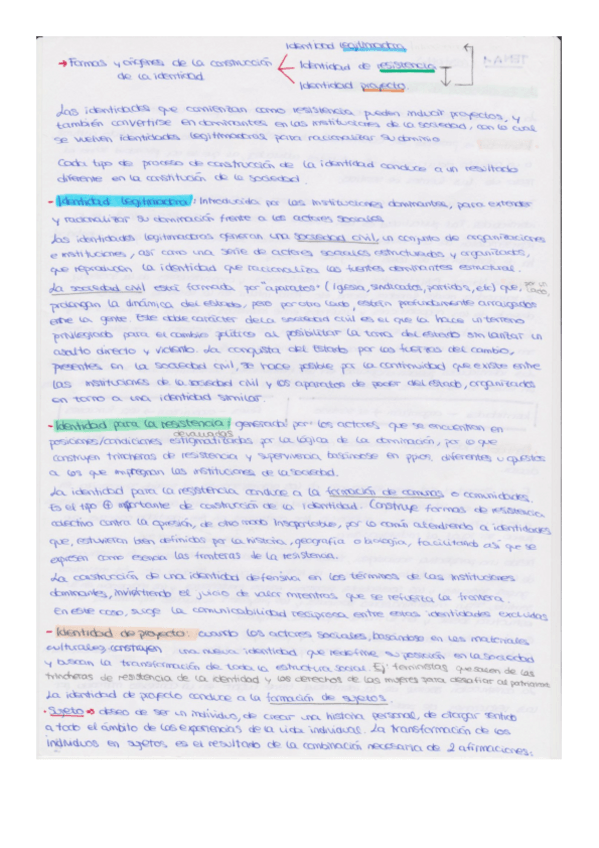 Identidad legitimadora
→ Formas y orígenes de la construcción
de la identidad.
Identidad de resistencia
Identidad proyecto.
TEMA 1
Las identidades que comienzan como resistencia pueden inducir proyectos, y
también convertirse en dominantes en las instituciones de la sociedad, con lo cual
se vuelven identidades legitimadoras para racionalizar su dominio
Cada tipo de proceso de construcción de la identidad conduce a un resultado
diferente en la constitución de la sociedad.
- Identidad legitimadora: Introducida por las instituciones dominantes, para extender
y racionalizar su dominación frente a los actores sociales
Las identidades legitimadoras generan una sociedad civil, un conjunto de organizaciones
e instituciones, así como una serie de actores sociales estructurados y organizados,
que reproducen la identidad que racionaliza las fuentes dominantes estructural.
La sociedad civil está formada por "aparatos" (iglesia, sindicatos, partidos, etc) que, por un lado,
prolongan la dinámica del estado, pero por otro lado, están profundamente arraigados
entre la gente. Este doble carácter de la sociedad civil es el que la hace un terreno
privilegiado para el cambio político al posibilitar la toma del estado sin lanzar un
asalto directo y violento. La conquista del Estado por las fuerzas del cambio,
presentes en la sociedad civil, se hace posible por la continuidad que existe entre
las instituciones de la sociedad civil y los aparatos de poder del estado, organizados
en torno a una identidad similar.
- Identidad para la resistencia: generada por los actores que se encuentran en
posiciones/condiciones devaluadas estigmatizadas por la lógica de la dominación, por lo que
construyen trincheras de resistencia y supervivencia basándose en ppios. diferentes u opuestos
a los que impregnan las instituciones de la sociedad.
La identidad para la resistencia conduce a la formación de comunas o comunidades.
Es el tipo ⊕ importante de construcción de la identidad. Construye formas de resistencia
colectiva contra la opresión, de otro modo insoportable, por lo común atendiendo a identidades
que, estuvieron bien definidas por la historia, geografía o biología, facilitando así que se
expresen como esencia las fronteras de la resistencia.
La construcción de una identidad defensiva en los términos de las instituciones
dominantes, invirtiendo el juicio de valor mientras que se refuerza la frontera.
En este caso, surge la comunicabilidad recíproca entre estas identidades excluidas
- Identidad de proyecto: cuando los actores sociales, basándose en los materiales
culturales, construyen una nueva identidad que redefine su posición en la sociedad
y buscan la transformación de toda la estructura social. Ej: feministas que salen de las
trincheras de resistencia de la identidad y los derechos de las mujeres para desafiar al patriarcado
La identidad de proyecto conduce a la formación de sujetos.
• Sujeto → deseo de ser un individuo, de crear una historia personal, de otorgar sentido
a todo el ámbito de las experiencias de la vida individual. La transformación de los
individuos en sujetos es el resultado de la combinación necesaria de 2 afirmaciones: